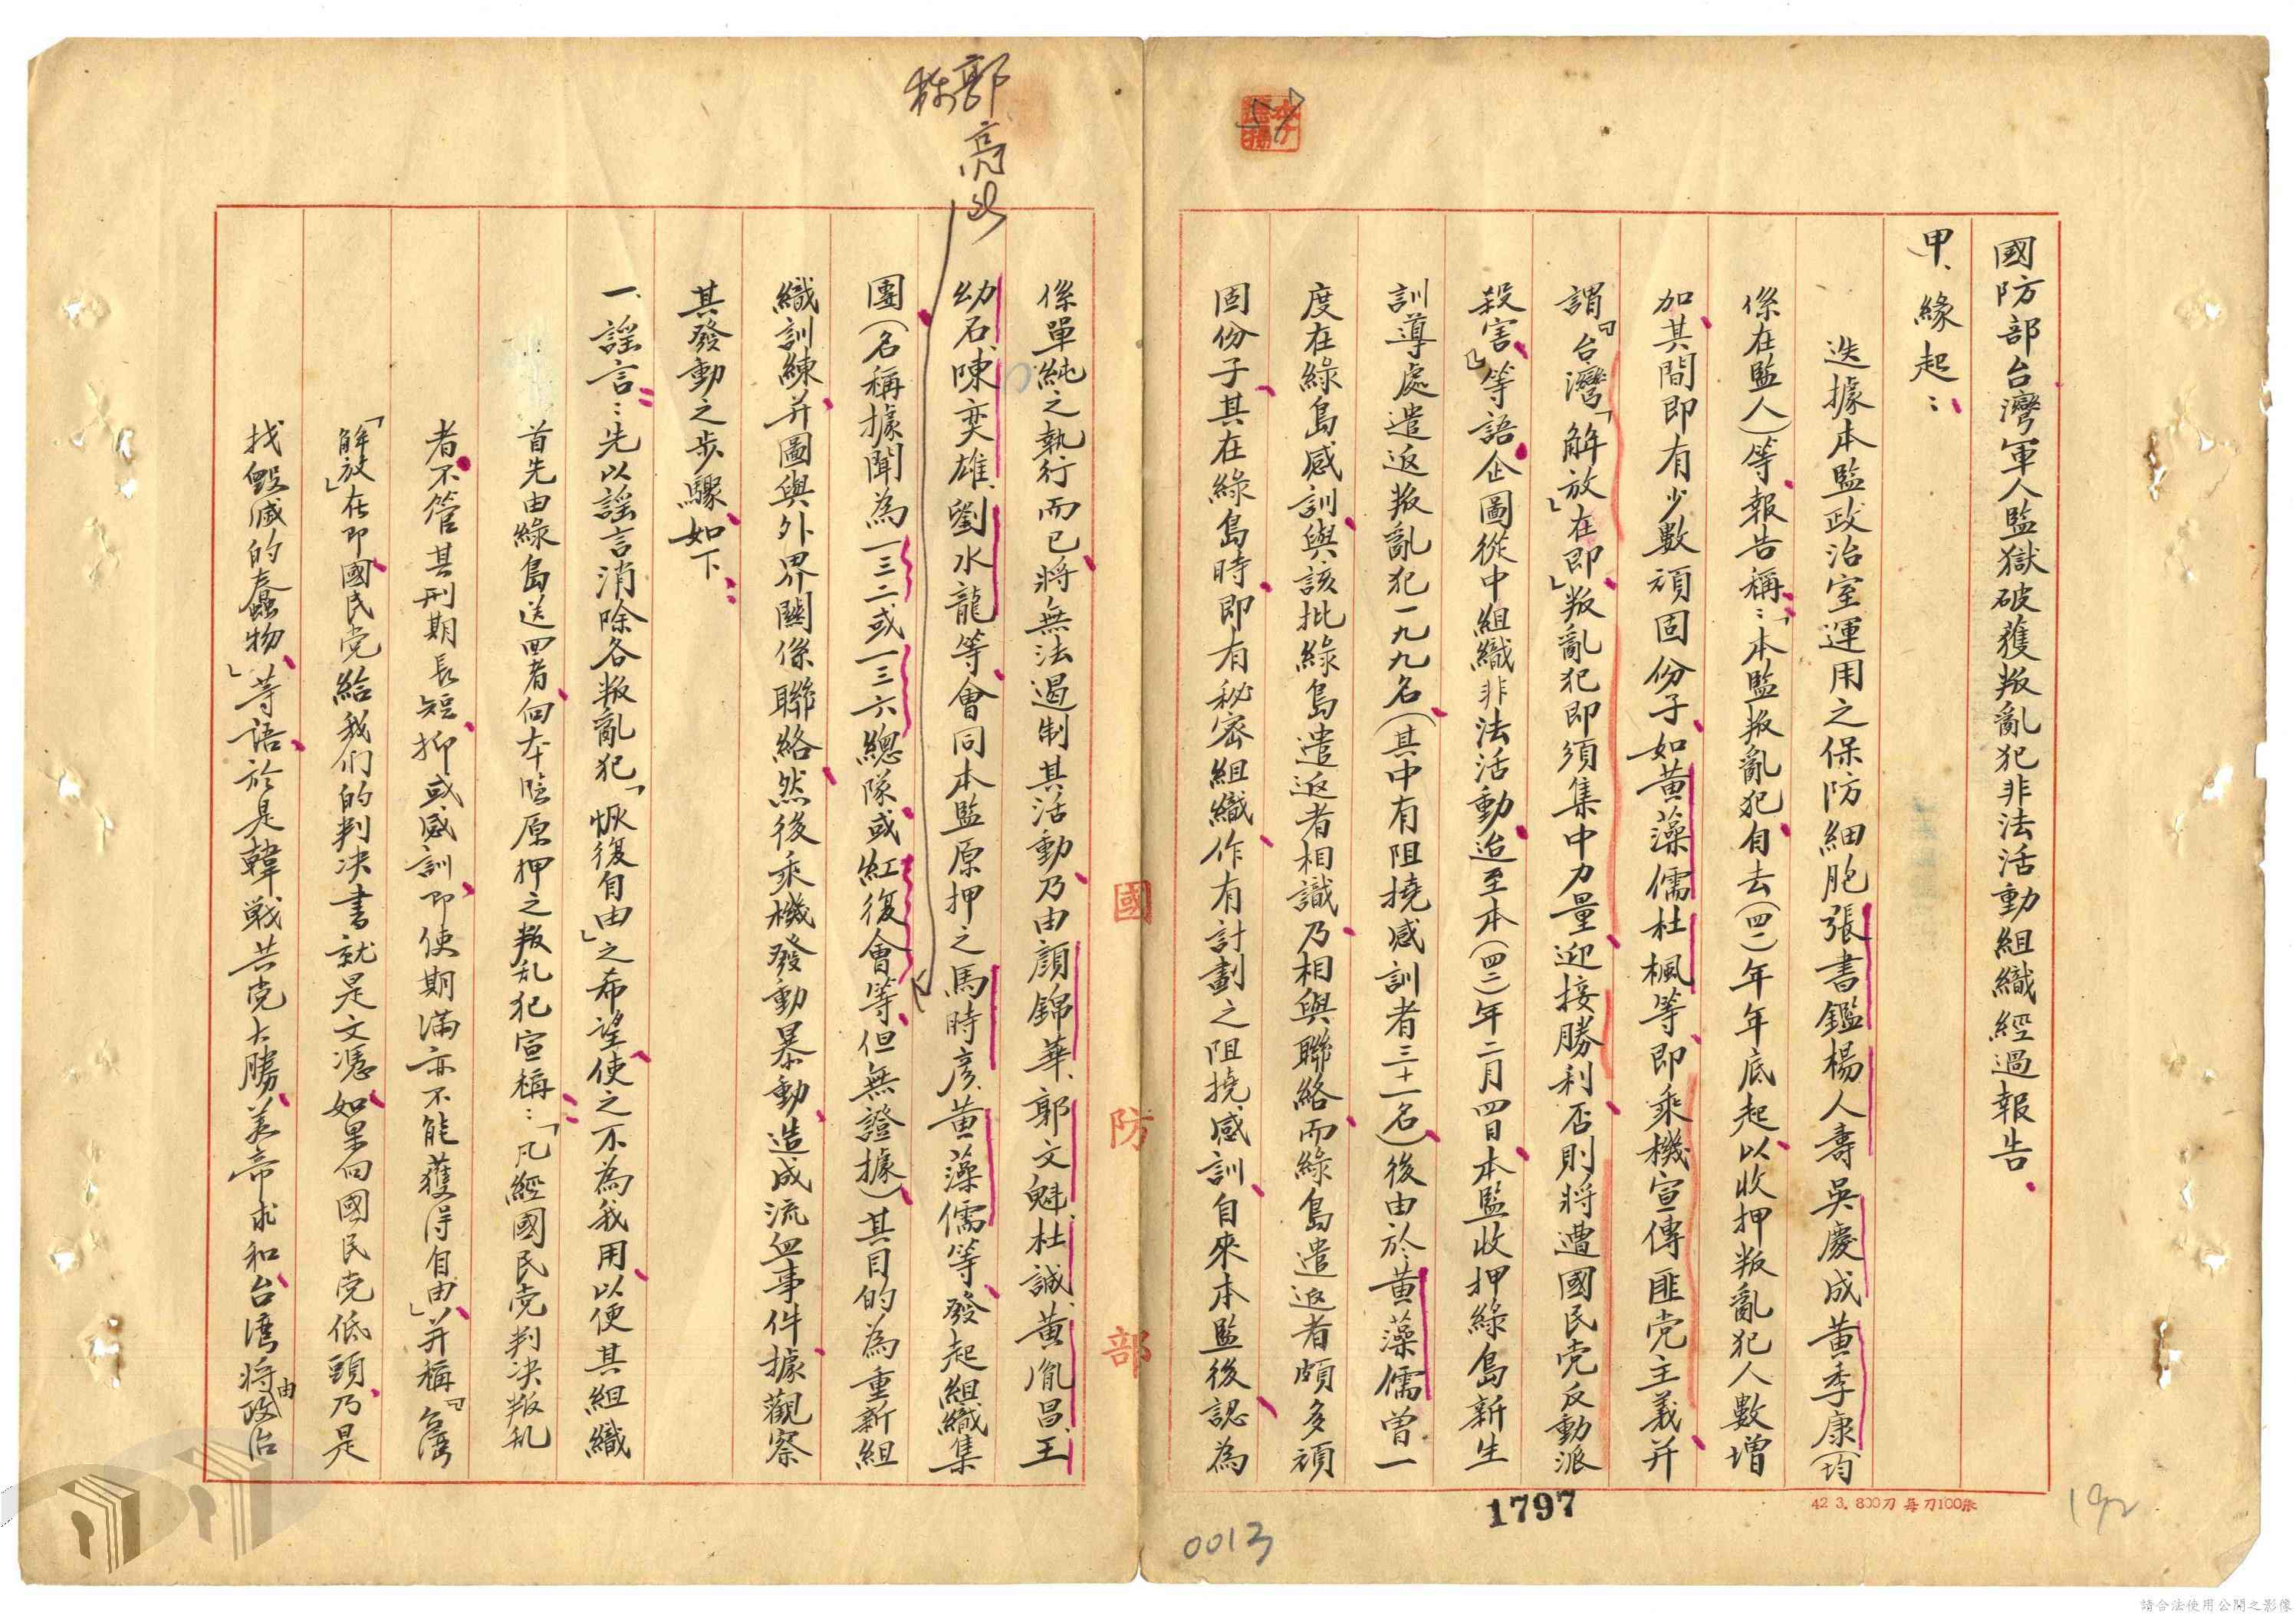 國防部台灣軍人監獄破獲叛亂犯非法活動組織經過報告、
甲、緣起：
迭據本監政治室運用之保防細胞張書鑑楊人壽吳慶成黃季康（均
係在監人）等、報告稱：「本監叛亂犯、自去（四一）年年底起、以收押叛亂犯人數增
加、其間即有少數頑固份子、如黃藻儒杜楓等、即乘機宣傳匪党主義、并
謂『台灣「解放」在即』、叛亂犯即須集中力量、迎接勝利、否則將遭國民党反動派
殺害、』等語、企圖從中組織非法活動、迨至本（四二）年二月四日、本監收押綠島新生
訓導處遣返叛亂犯一九九名、（其中有阻撓感訓者三十一名）、後由於黃藻儒曾一
度在綠島感訓、與該批綠島遣返者相識、乃相與聯絡、而綠島遣返者頗多頑
固份子、其在綠島時、即有秘密組織、作有計劃之阻撓感訓、自來本監後、認為
係單純之執行而已、將無法遏制其活動、乃由顏錦華、郭文魁、杜誠、黃胤昌、王
幼石、陳奕雄、劉水龍等、會同本監原押之馬時彥、黃藻儒等、發起組織集
團、（名稱據聞為一三二或一三六總隊、或紅復會等、但無證據）、其目的為重新組
織訓練、并圖與外界關係聯絡、然後乘機發動暴動、造成流血事件、據觀察
其發動之步驟、如下：
一、謠言：先以謠言消除各叛亂犯「恢復自由」之希望、使之不為我用、以便其組織
首先由綠島送回者、向本監原押之叛乱犯宣稱：「凡經國民党判决叛乱
者、不管其刑期長短、抑或感訓、即使期滿亦不能獲得自由」、并稱『台灣
「解放」在即、國民党給我们的判决書就是文憑、如果向國民党低頭、乃是
找毀滅的蠢物」、等語、於是韓戰共党大勝、美帝求和、台灣將由政治
郭
亮
國防部
1797
0013
192
42 3. 800刀 每刀100張
請合法使用公開之影像